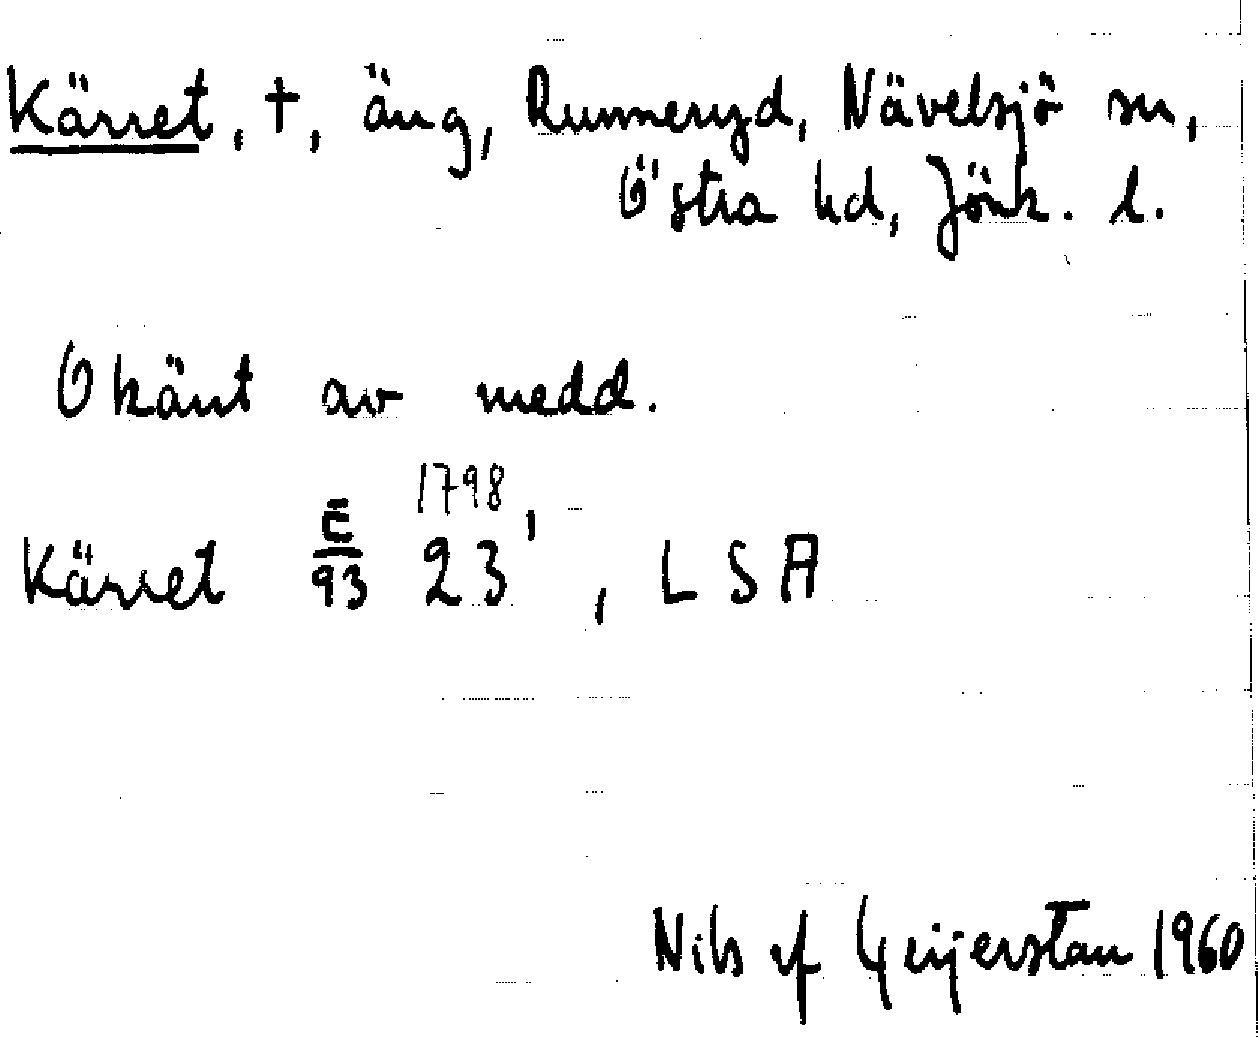 Kärret, †, äng, Runneryd, Nävelsjö sn,
Östra hd, Jönk. l.
Okänt av medd.
1798,
Kärret E/93 23, LSA
Nils af Geijerstam 1960